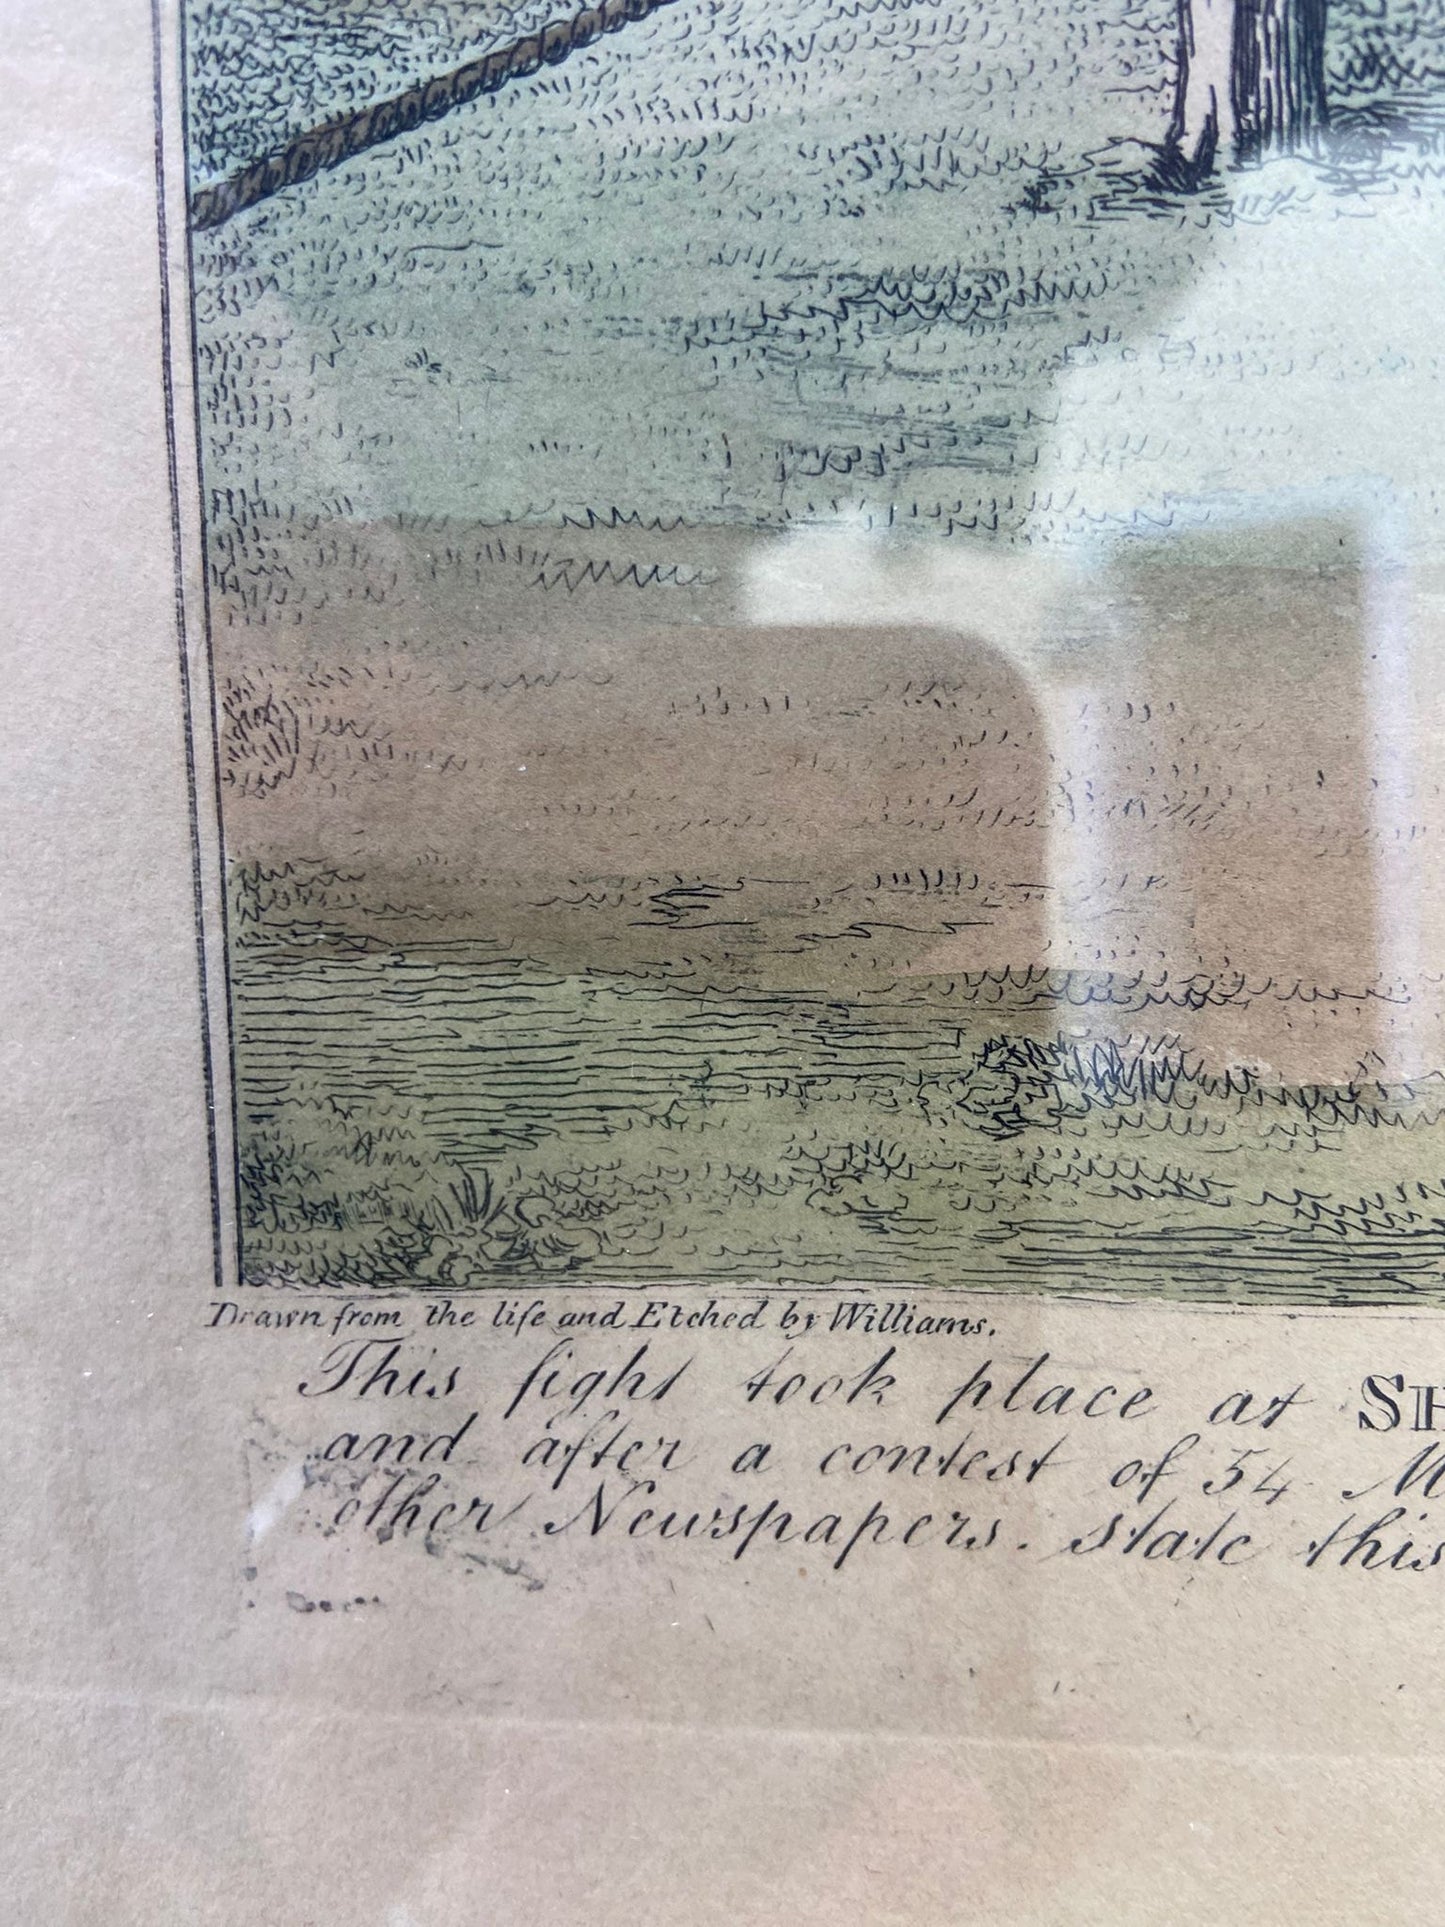 Drawn from the life and Etched by Williams.
This fight took place at SH
and after a contest of 54 M
other Newspapers. state this